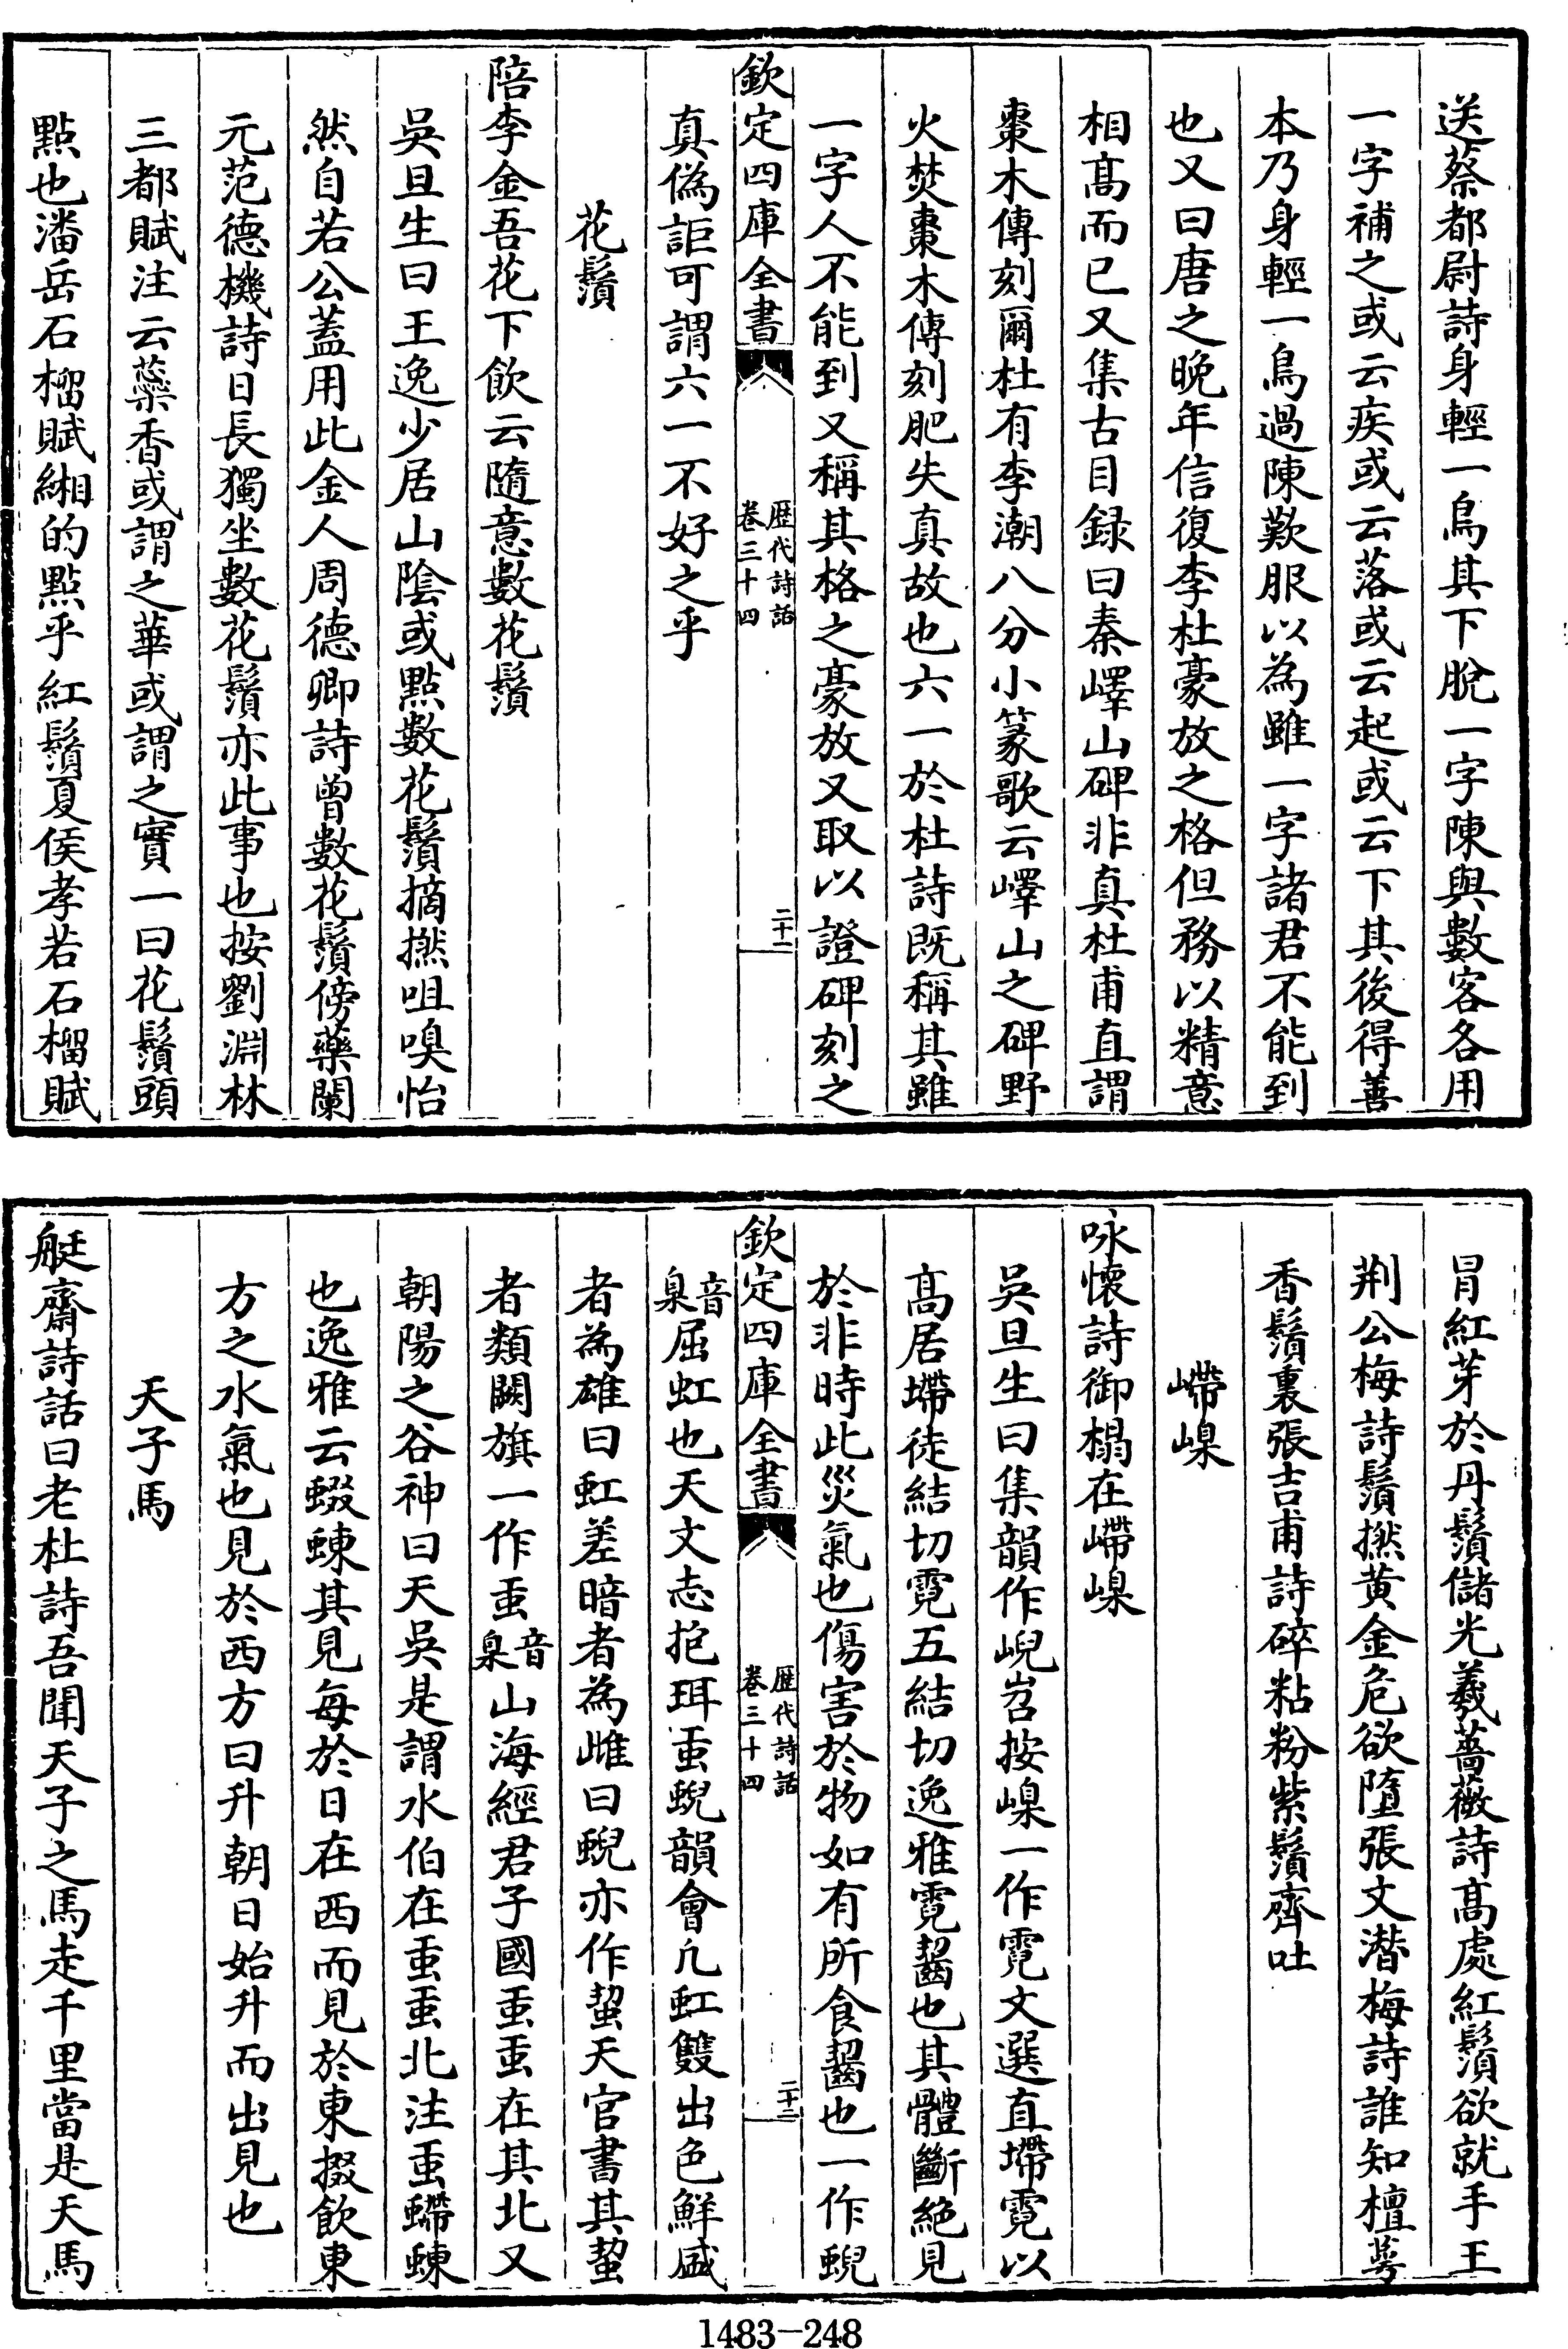 送蔡都尉詩身輕一鳥其下脫一字陳與數客各用
一字補之或云疾或云落或云起或云下其後得善
本乃身輕一鳥過陳歎服以為雖一字諸君不能到
也又曰唐之晚年信復李杜豪放之格但務以精意
相髙而已又集古目録曰秦嶧山碑非真杜甫直謂
棗木傳刻爾杜有李潮八分小篆歌云嶧山之碑野
火焚棗木傳刻肥失真故也六一於杜詩既稱其雖
一字人不能到又稱其格之豪放又取以證碑刻之
欽定四庫全書
歴代詩話
卷三十四
二十一
真偽詎可謂六一不好之乎
花鬚
陪李金吾花下飲云隨意數花鬚
吳旦生曰王逸少居山隂或點數花鬚摘撚咀嗅怡
然自若公蓋用此金人周德卿詩曾數花鬚傍藥闌
元范德機詩日長獨坐數花鬚亦此事也按劉淵林
三都賦注云蘂香或謂之華或謂之實一曰花鬚頭
點也潘岳石榴賦緗的點乎紅鬚夏侯孝若石榴賦
冐紅芽於丹鬚儲光羲薔薇詩髙處紅鬚欲就手王
荆公梅詩鬚撚黄金危欲墮張文潛梅詩誰知檀蕚
香鬚裏張吉甫詩碎粘粉紫鬚齊吐
嵽嵲
咏懷詩御榻在嵽嵲
吳旦生曰集韻作峴岧按嵲一作霓文選直墆霓以
髙居墆徒結切霓五結切逸雅霓齧也其體斷絶見
於非時此災氣也傷害於物如有所食齧也一作蜺
欽定四庫全書
歴代詩話
卷三十四
二十二
音臬屈虹也天文志抱珥䖝蜺韻會凢虹雙出色鮮盛
者為雄曰虹差暗者為雌曰蜺亦作蛪天官書其蛪
者類闕旗一作䖝音臬山海經君子國䖝䖝在其北又
朝陽之谷神曰天吳是謂水伯在䖝䖝北注䖝螮蝀
也逸雅云蝃蝀其見每於日在西而見於東掇飲東
方之水氣也見於西方曰升朝日始升而出見也
天子馬
艇齋詩話曰老杜詩吾聞天子之馬走千里當是天馬
1483-248